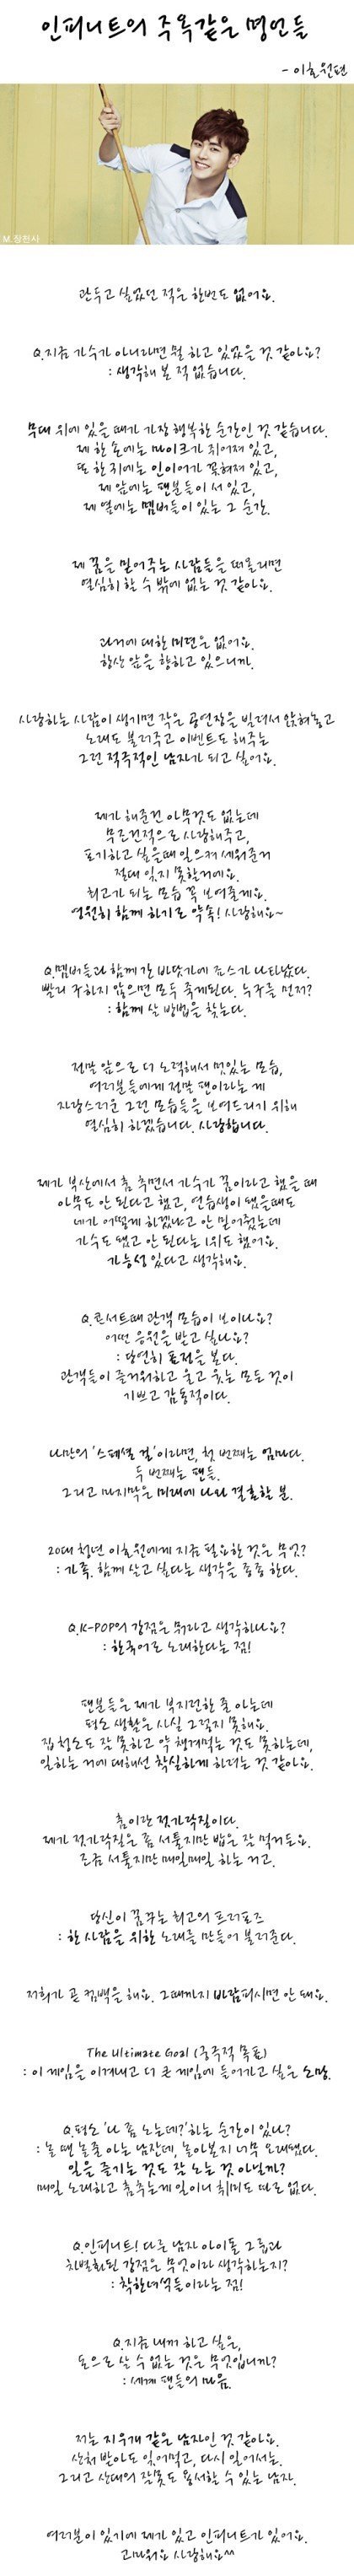 인피니트의 주옥같은 명언들
- 이호원편
M.장전사
관두고 싶었던 적은 한번도 없어요.
Q.지금 가수가 아니라면 뭘 하고 있었을 것 같아요?
: 생각해 본 적 없습니다.
무대 위에 있을 때가 가장 행복한 순간인 것 같습니다.
제 한 손에는 마이크가 쥐어져 있고,
또 한 귀에는 인이어가 꽂혀져 있고,
제 앞에는 팬분들이 서 있고,
제 옆에는 멤버들이 있는 그 순간.
제 꿈을 믿어주는 사람들을 떠올리면
열심히 할 수 밖에 없는 것 같아요.
과거에 대한 미련은 없어요.
항상 앞을 향하고 있으니까.
사랑하는 사람이 생기면 작은 공연장을 빌려서 앉혀놓고
노래도 불러주고 이벤트도 해주는
그런 적극적인 남자가 되고 싶어요.
제가 해준건 아무것도 없는데
무조건적으로 사랑해주고,
포기하고 싶을때 일으켜 세워준거
절대 잊지 못할거예요.
최고가 되는 모습 꼭 보여줄게요.
영원히 함께 하기로 약속! 사랑해요~
Q.멤버들과 함께 간 바닷가에 죠스가 나타났다.
빨리 구하지 않으면 모두 죽게된다. 누구를 먼저?
: 함께 살 방법을 찾는다.
정말 앞으로 더 노력해서 멋있는 모습,
여러분들에게 정말 팬이라는 게
자랑스러운 그런 모습들을 보여드리기 위해
열심히 하겠습니다. 사랑합니다.
제가 부산에서 춤 추면서 가수가 꿈이라고 했을 때
아무도 안 된다고 했고, 연습생이 됐을때도
네가 어떻게 하겠냐고 안 믿어줬는데
가수도 됐고 안 된다는 1위도 했어요.
가능성 있다고 생각해요.
Q.콘서트때 관객 모습이 보이나요?
어떤 응원을 받고 싶나요?
: 당연히 표정을 본다.
관객들이 즐거워하고 울고 웃는 모든 것이
기쁘고 감동적이다.
나만의 '스페셜 걸'이라면, 첫 번째는 엄마다.
두 번째는 팬들.
그리고 마지막은 미래에 나와 결혼할 분.
20대 청년 이호원에게 지금 필요한 것은 무엇?
: 가족. 함께 살고 싶다는 생각을 종종 한다.
Q.K-POP의 강점은 뭐라고 생각하나요?
: 한국어로 노래한다는 점!
팬분들은 제가 부지런한 줄 아는데
평소 생활은 사실 그렇지 못해요.
집 청소도 잘 못하고 약 챙겨먹는 것도 못하는데,
일하는 거에 대해선 착실하게 하려는 것 같아요.
춤이란 젓가락질이다.
제가 젓가락질은 좀 서툴지만 밥은 잘 먹거든요.
조금 서툴지만 매일매일 하는 거고.
당신이 꿈꾸는 최고의 프러포즈
: 한 사람을 위한 노래를 만들어 불러준다.
저희가 곧 컴백을 해요. 그때까지 바람피시면 안 돼요.
The Ultimate Goal (궁극적 목표)
: 이 게임을 이겨내고 더 큰 게임에 들어가고 싶은 소망.
Q.평소 '나 좀 노는데?'하는 순간이 있나?
: 놀 땐 놀 줄 아는 남잔데, 놀아본지 너무 오래됐다.
일을 즐기는 것도 잘 노는 것 아닐까?
매일 노래하고 춤추는게 일이니 취미도 따로 없다.
Q.인피니트! 다른 남자 아이돌 그룹과
차별화된 강점은 무엇이라 생각하는지?
: 착한녀석들이라는 점!
Q.지금 내가 하고 싶은,
돈으로 살 수 없는 것은 무엇입니까?
: 세계 팬들의 마음.
저는 지우개 같은 남자인 것 같아요.
상처 받아도 잊어먹고, 다시 일어서는.
그리고 상대의 잘못도 용서할 수 있는 남자.
여러분이 있기에 제가 있고 인피니트가 있어요.
고마워요 사랑해요^^